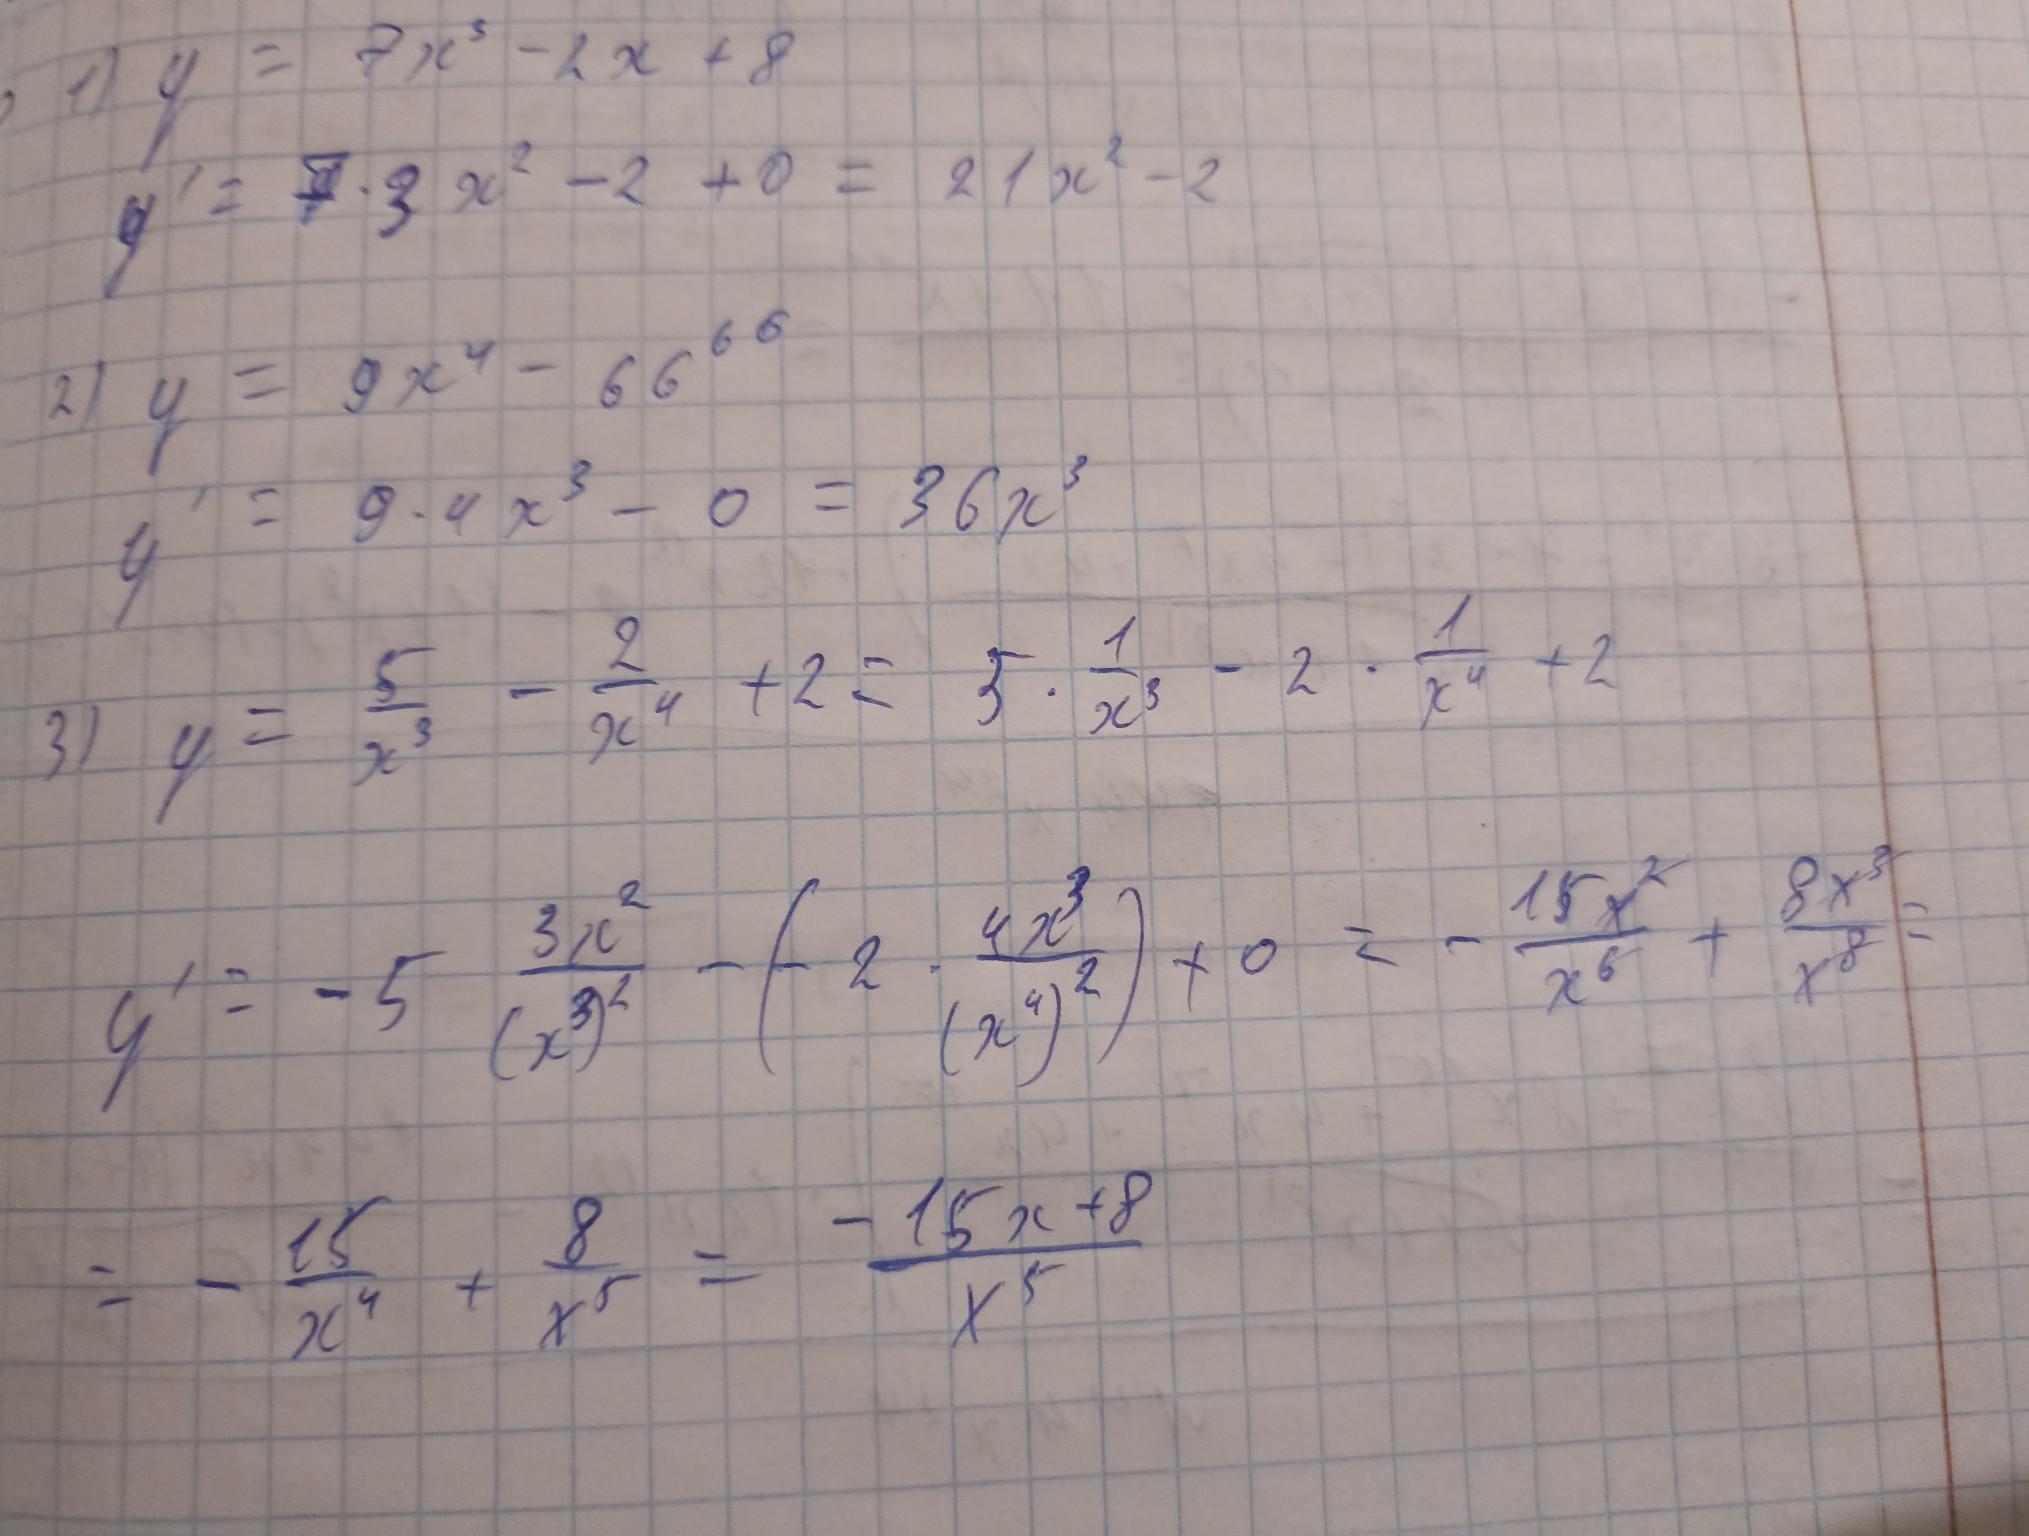 1) y = 7x³ - 2x + 8
y' = 7·3x² - 2 + 0 = 21x² - 2
2) y = 9x⁴ - 66⁶⁶
y' = 9·4x³ - 0 = 36x³
3) y = 5/x³ - 2/x⁴ + 2 = 5·1/x³ - 2·1/x⁴ + 2
y' = -5 3x²/(x³)² - (-2·4x³/(x⁴)²) + 0 = -15x²/x⁶ + 8x³/x⁸ =
= -15/x⁴ + 8/x⁵ = (-15x+8)/x⁵